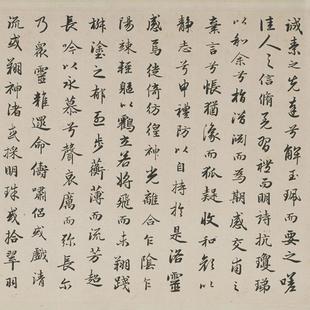 誠素之先達兮解玉珮而要之嗟
佳人之信脩羌習禮而明詩抗瓊珶
以和余兮指潛淵而為期感交甫之
棄言兮悵猶豫而狐疑收和顏以
靜志兮申禮防以自持於是洛靈
感焉徙倚彷徨神光離合乍陰乍
陽竦輕軀以鶴立若將飛而未翔踐
椒塗之郁烈步蘅薄而流芳超
長吟以永慕兮聲哀厲而彌長爾
乃眾靈雜遝命儔嘯侶或戲清
流或翔神渚或採明珠或拾翠羽